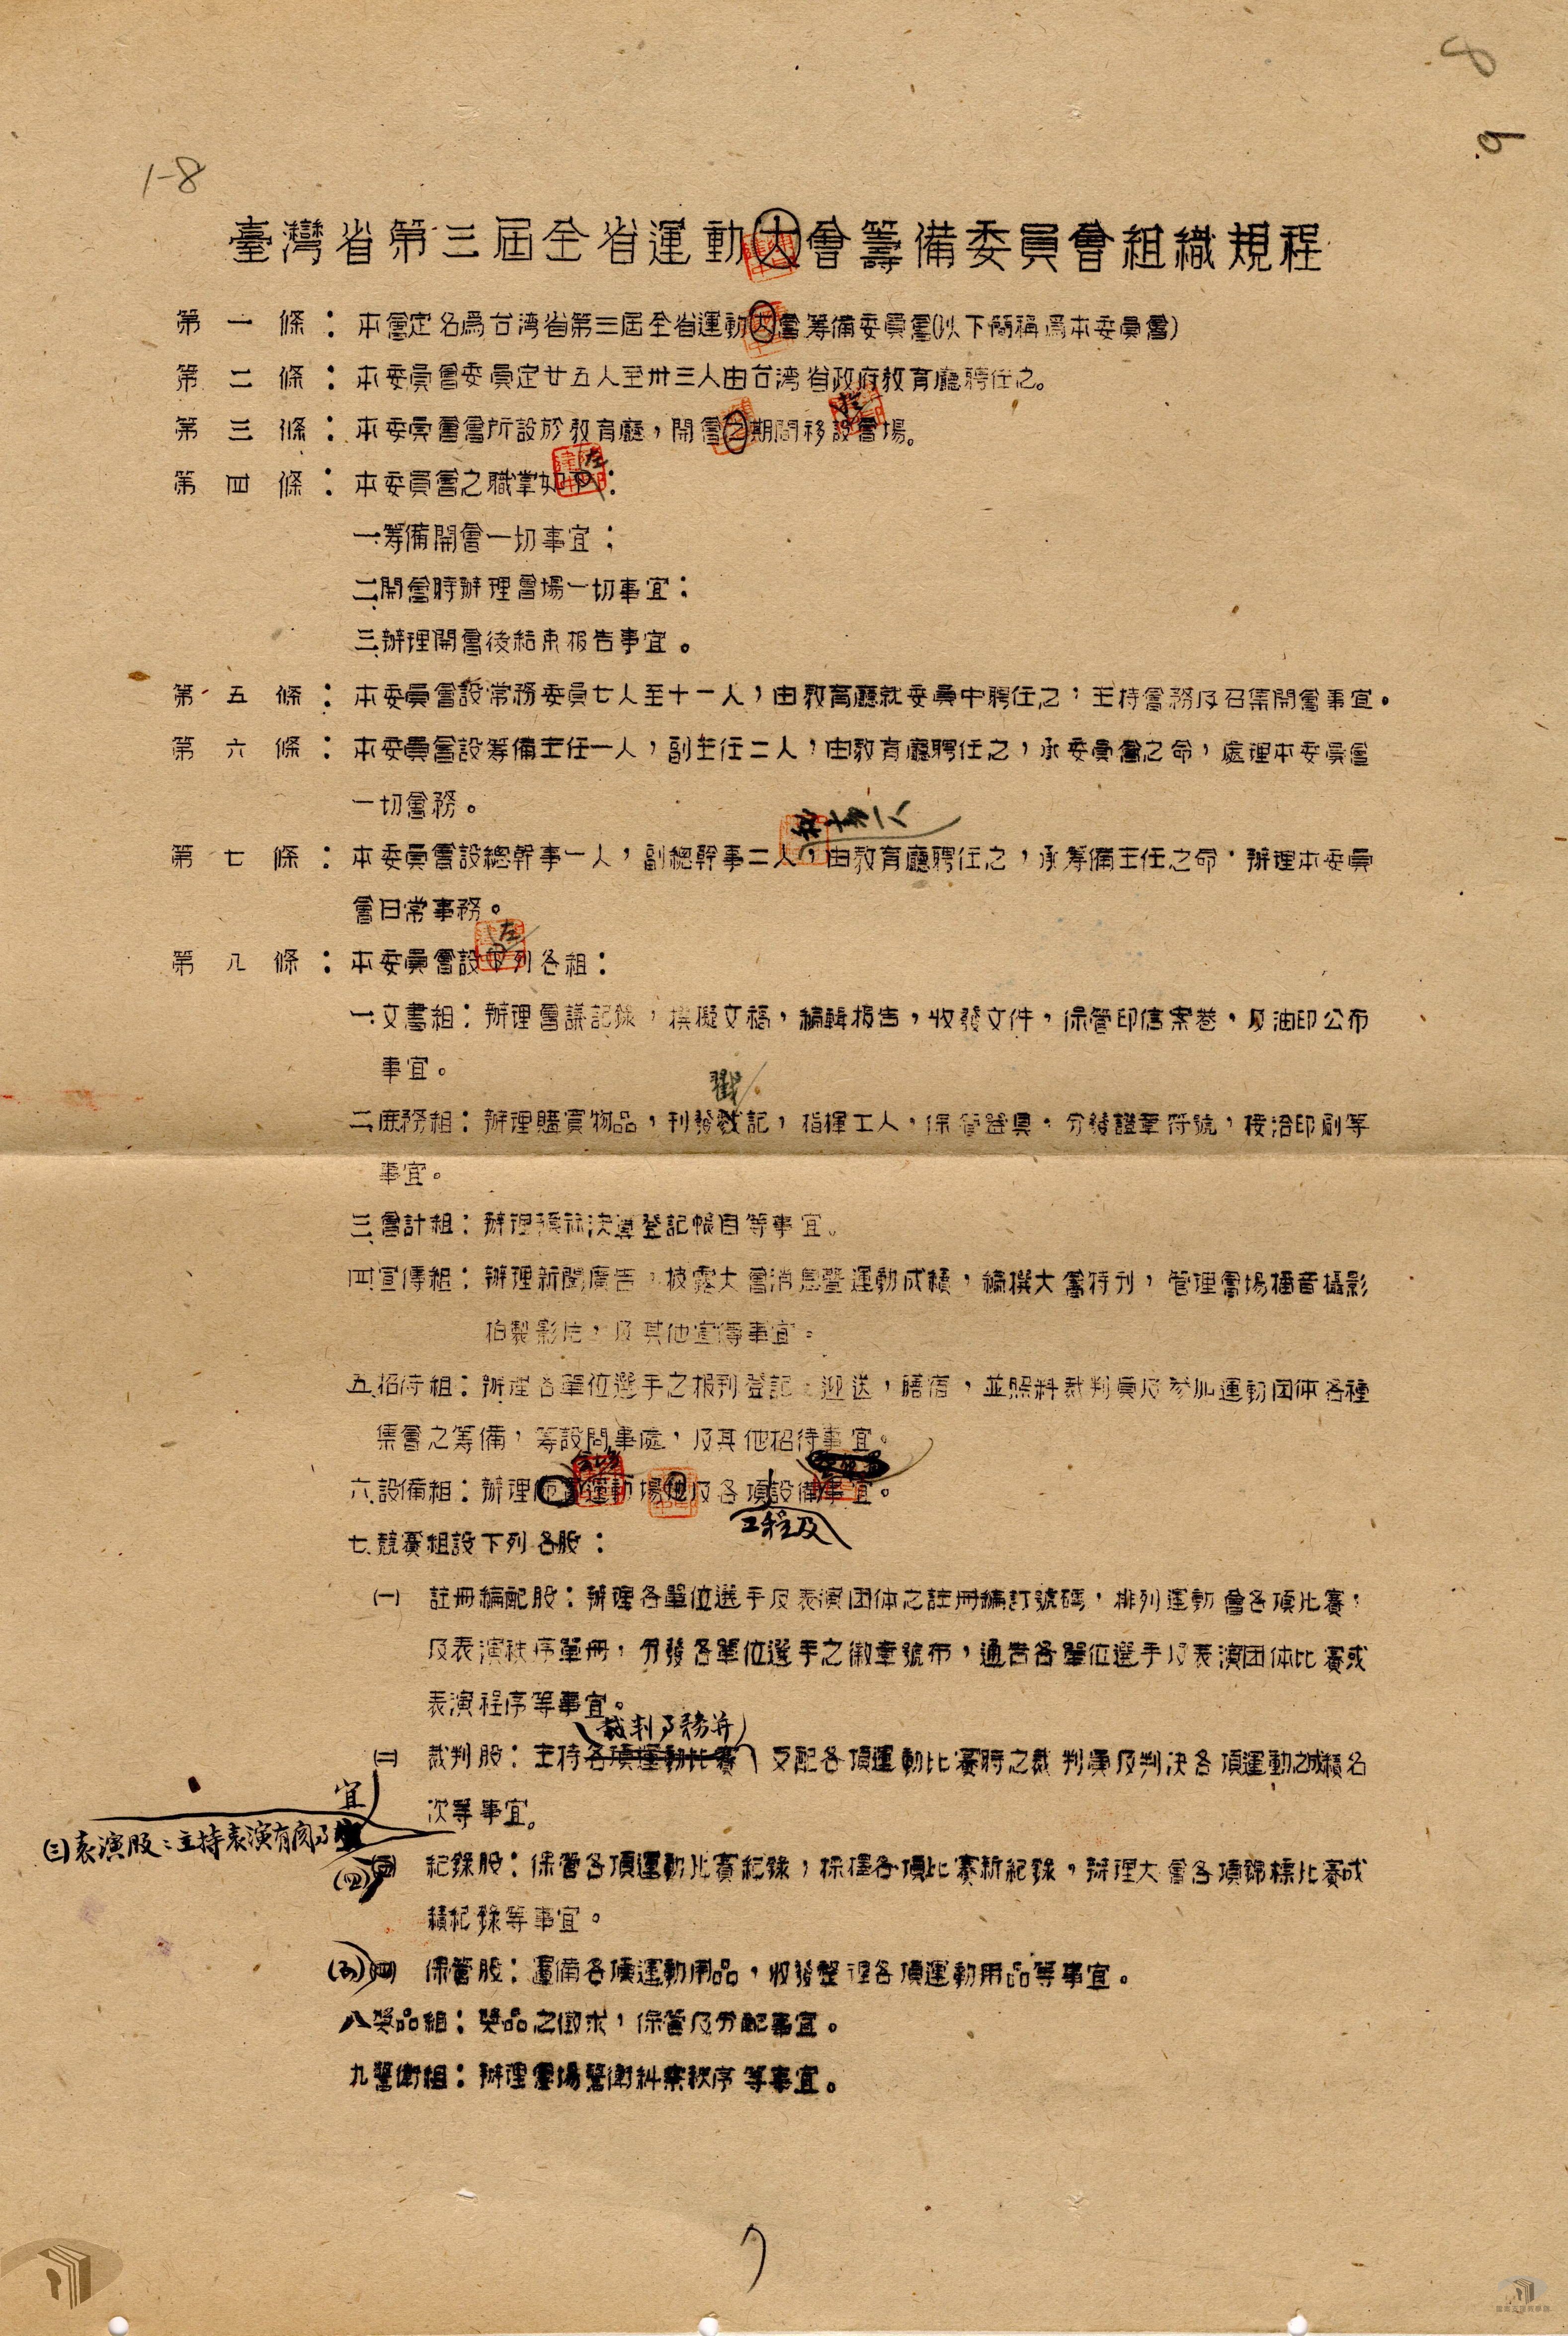 8
9
1-8
臺灣省第三屆全省運動大會籌備委員會組織規程
第一條：本會定名為台湾省第三屆全省運動大會籌備委員會(以下簡稱為本委員會)
第二條：本委員會委員定廿五人至卅三人由台湾省政府教育廳聘任之。
第三條：本委員會會所設於教育廳，開會之期間移設會場。
左
第四條：本委員會之職掌如下：
一、籌備開會一切事宜；
二、開會時辦理會場一切事宜：
三、辦理開會後結束报告事宜。
第五條：本委員會設常務委員七人至十一人，由教育廳就委員中聘任之，主持會務及召集開會事宜。
第六條：本委員會設籌備主任一人，副主任二人，由教育廳聘任之，承委員會之命，處理本委員會
一切會務。
第七條：本委員會設總幹事一人，副總幹事二人，由教育廳聘任之，承籌備主任之命，辦理本委員
會日常事務。
左
第八條：本委員會設下列各組：
一、文書組：辦理會議記錄，撰擬文稿，編輯报告，收發文件，保管印信案卷，及油印公布
事宜。
戳
二、庶務組：辦理購買物品，刊發戳記，指揮工人，保管器具，分發證章符號，接洽印刷等
事宜。
三、會計組：辦理預祘決算登記帳目等事宜。
四、宣傳組：辦理新聞廣告，披露大會消息暨運動成績，編撰大會特刊，管理會場播音攝影
拍製影片，及其他宣傳事宜。
五、招待組：辦理各單位選手之报到登記，迎送，膳宿，並照料裁判員及參加運動团体各種
集會之籌備，籌設問事處，及其他招待事宜。
六、設備組：辦理運動場地及各項設備事宜。
工程及
七、競賽組設下列各股：
㈠　註冊編配股：辦理各單位選手及表演团体之註冊編訂號碼，排列運動會各項比賽，
及表演秩序單冊，分發各單位選手之徽章號布，通告各單位選手及表演团体比賽或
表演程序等事宜。
裁判了務并
㈡　裁判股：主持各項運動比賽支配各項運動比賽時之裁判員及判決各項運動之成績名
次等事宜。
宜
㈢表演股：主持表演有関了
(四)　紀錄股：保管各項運動比賽紀錄，採擇各項比賽新紀錄，辦理大會各項錦標比賽成
績紀錄等事宜。
(五)㈣　保管股：籌備各項運動用品，收發整理各項運動用品等事宜。
八、獎品組：獎品之徵求，保管及分配事宜。
九、警衛組：辦理會場警衛糾察秩序等事宜。
7